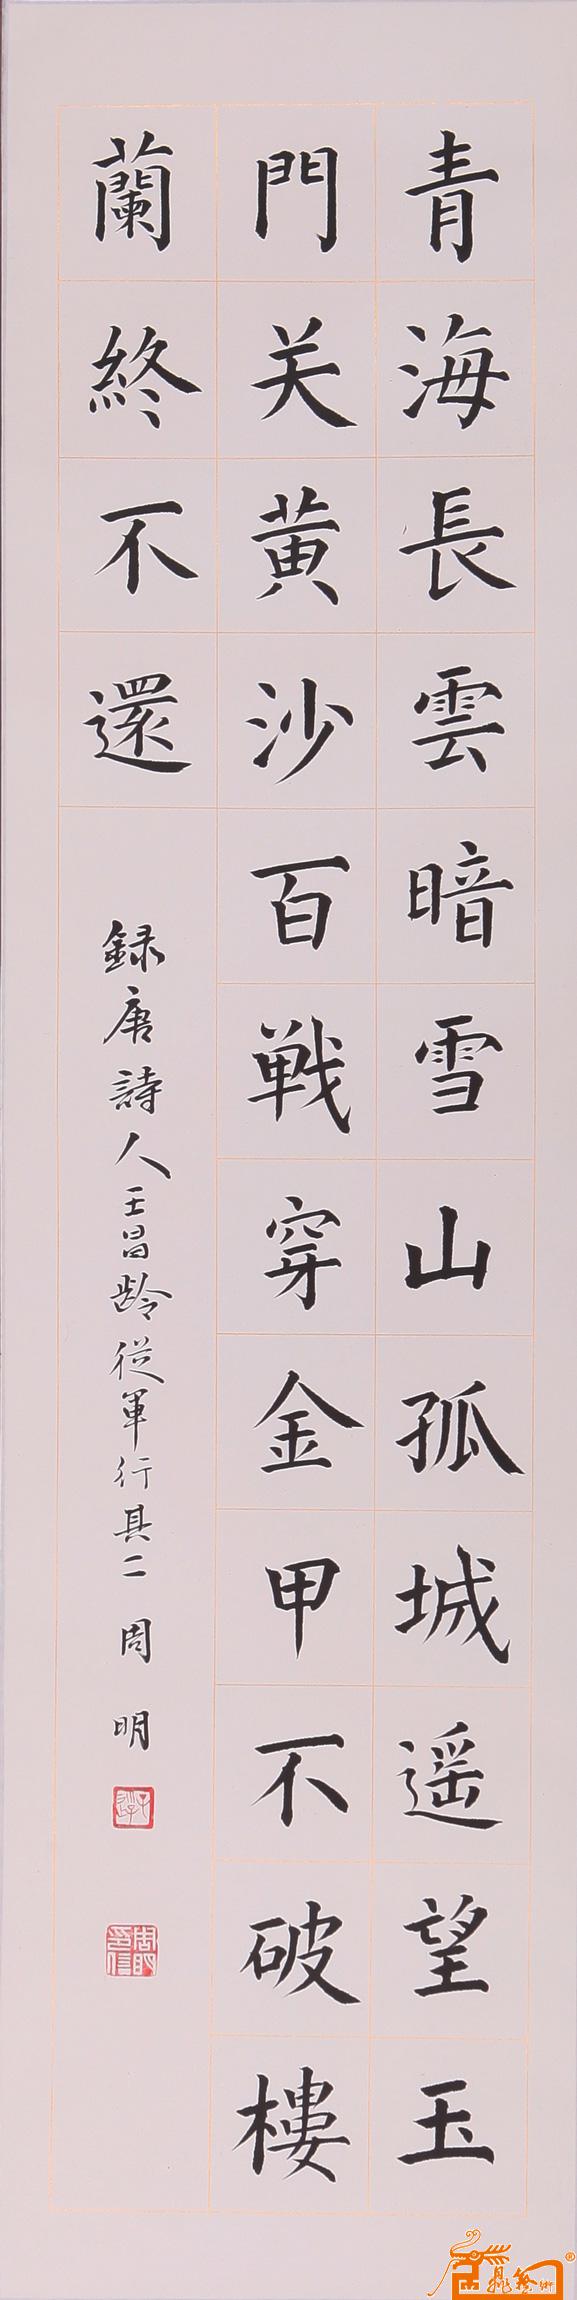 青海長雲暗雪山孤城遥望玉
門关黄沙百戦穿金甲不破樓
蘭終不還
録唐詩人王昌龄從軍行其二 周明
周明印信